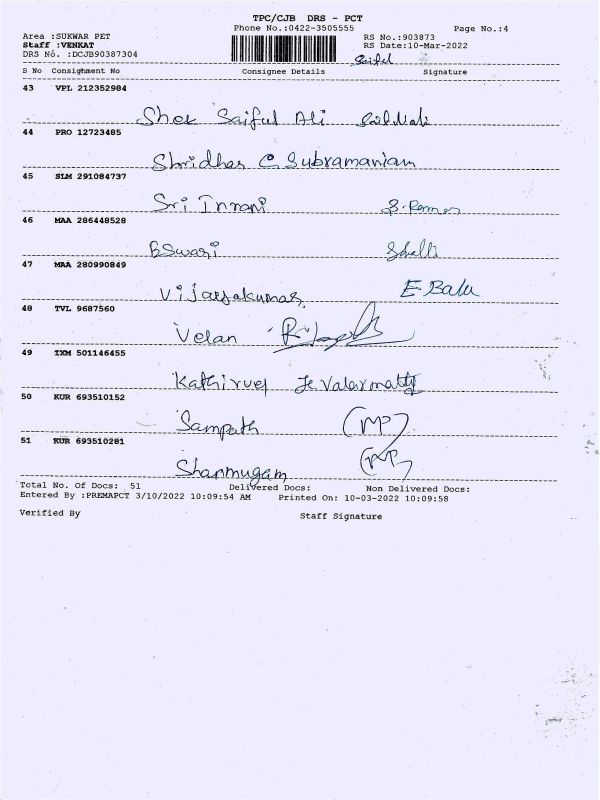 TPC/CJB DRS - PCT
Phone No.:0422-3505555 Page No.:4
Area :SUKWAR PET RS No.:903873
Staff :VENKAT RS Date:10-Mar-2022
DRS No. :DCJB90387304
S No Consignment No Consignee Details Signature
43 VPL 212352984
Saiful Ali
44 PRO 12723485
Shridhar C Subramaniam
45 SLM 291084737
Sri
46 MAA 286448528
47 MAA 280990849
Vijayakumar E Balu
48 TVL 9687560
Velan
49 IXM 501146455
Kathirvel
50 KUR 693510152
Sampath (MP)
51 KUR 693510281
Shanmugam (MP)
Total No. Of Docs: 51 Delivered Docs: Non Delivered Docs:
Entered By :PREMAPCT 3/10/2022 10:09:54 AM Printed On: 10-03-2022 10:09:58
Verified By Staff Signature